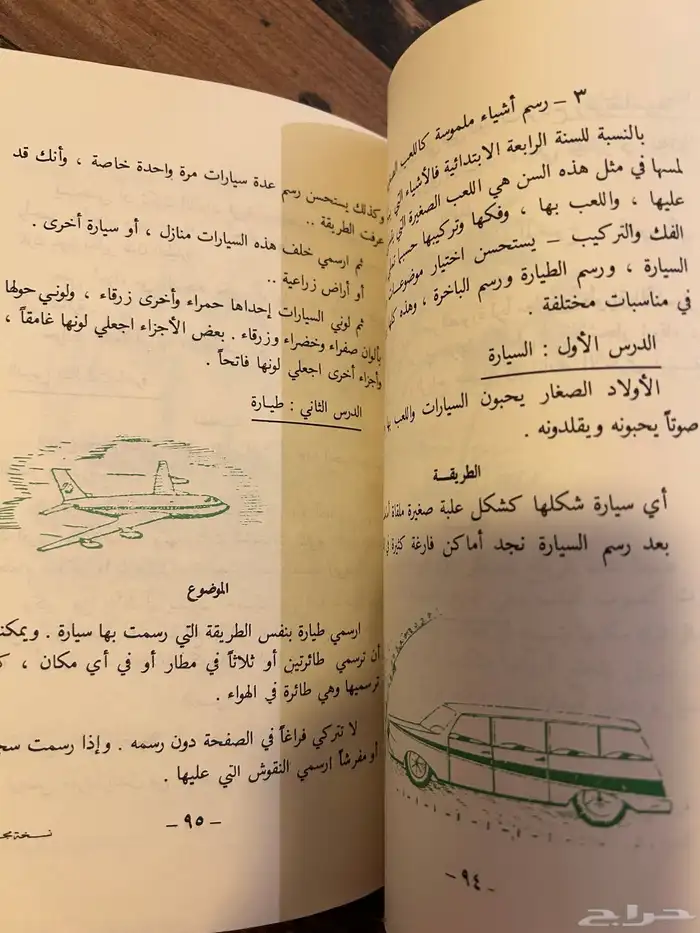 ٣ – رسم أشياء ملموسة كاللعب
بالنسبة للسنة الرابعة الابتدائية فالأشياء التي
لمسها في مثل هذه السن هي اللعب الصغيرة التي
عليها ، واللعب بها ، وفكها وتركيبها حسبما
الفك والتركيب – يستحسن اختيار موضوعات
السيارة ، ورسم الطيارة ورسم الباخرة ، وهذه
في مناسبات مختلفة .
الدرس الأول : السيارة
الأولاد الصغار يحبون السيارات واللعب بها
صوتاً يحبونه ويقلدونه .
الطريقة
أي سيارة شكلها كشكل علبة صغيرة ملقاة
بعد رسم السيارة نجد أماكن فارغة كثيرة
– ٩٤ –
وكذلك يستحسن رسم عدة سيارات مرة واحدة خاصة ، وأنك قد
عرفت الطريقة ..
ثم ارسمي خلف هذه السيارات منازل ، أو سيارة أخرى .
أو أراض زراعية ..
ثم لوني السيارات إحداها حمراء وأخرى زرقاء ، ولوني حولها
بألوان صفراء وخضراء وزرقاء . بعض الأجزاء اجعلي لونها غامقاً ،
وأجزاء أخرى اجعلي لونها فاتحاً .
الدرس الثاني : طيارة
الموضوع
ارسمي طيارة بنفس الطريقة التي رسمت بها سيارة .
أن ترسمي طائرتين أو ثلاثاً في مطار أو في أي مكان ،
ترسميها وهي طائرة في الهواء .
لا تتركي فراغاً في الصفحة دون رسمه . وإذا رسمت
أو مفرشاً ارسمي النقوش التي عليها .
– ٩٥ –
نسخة
حراج